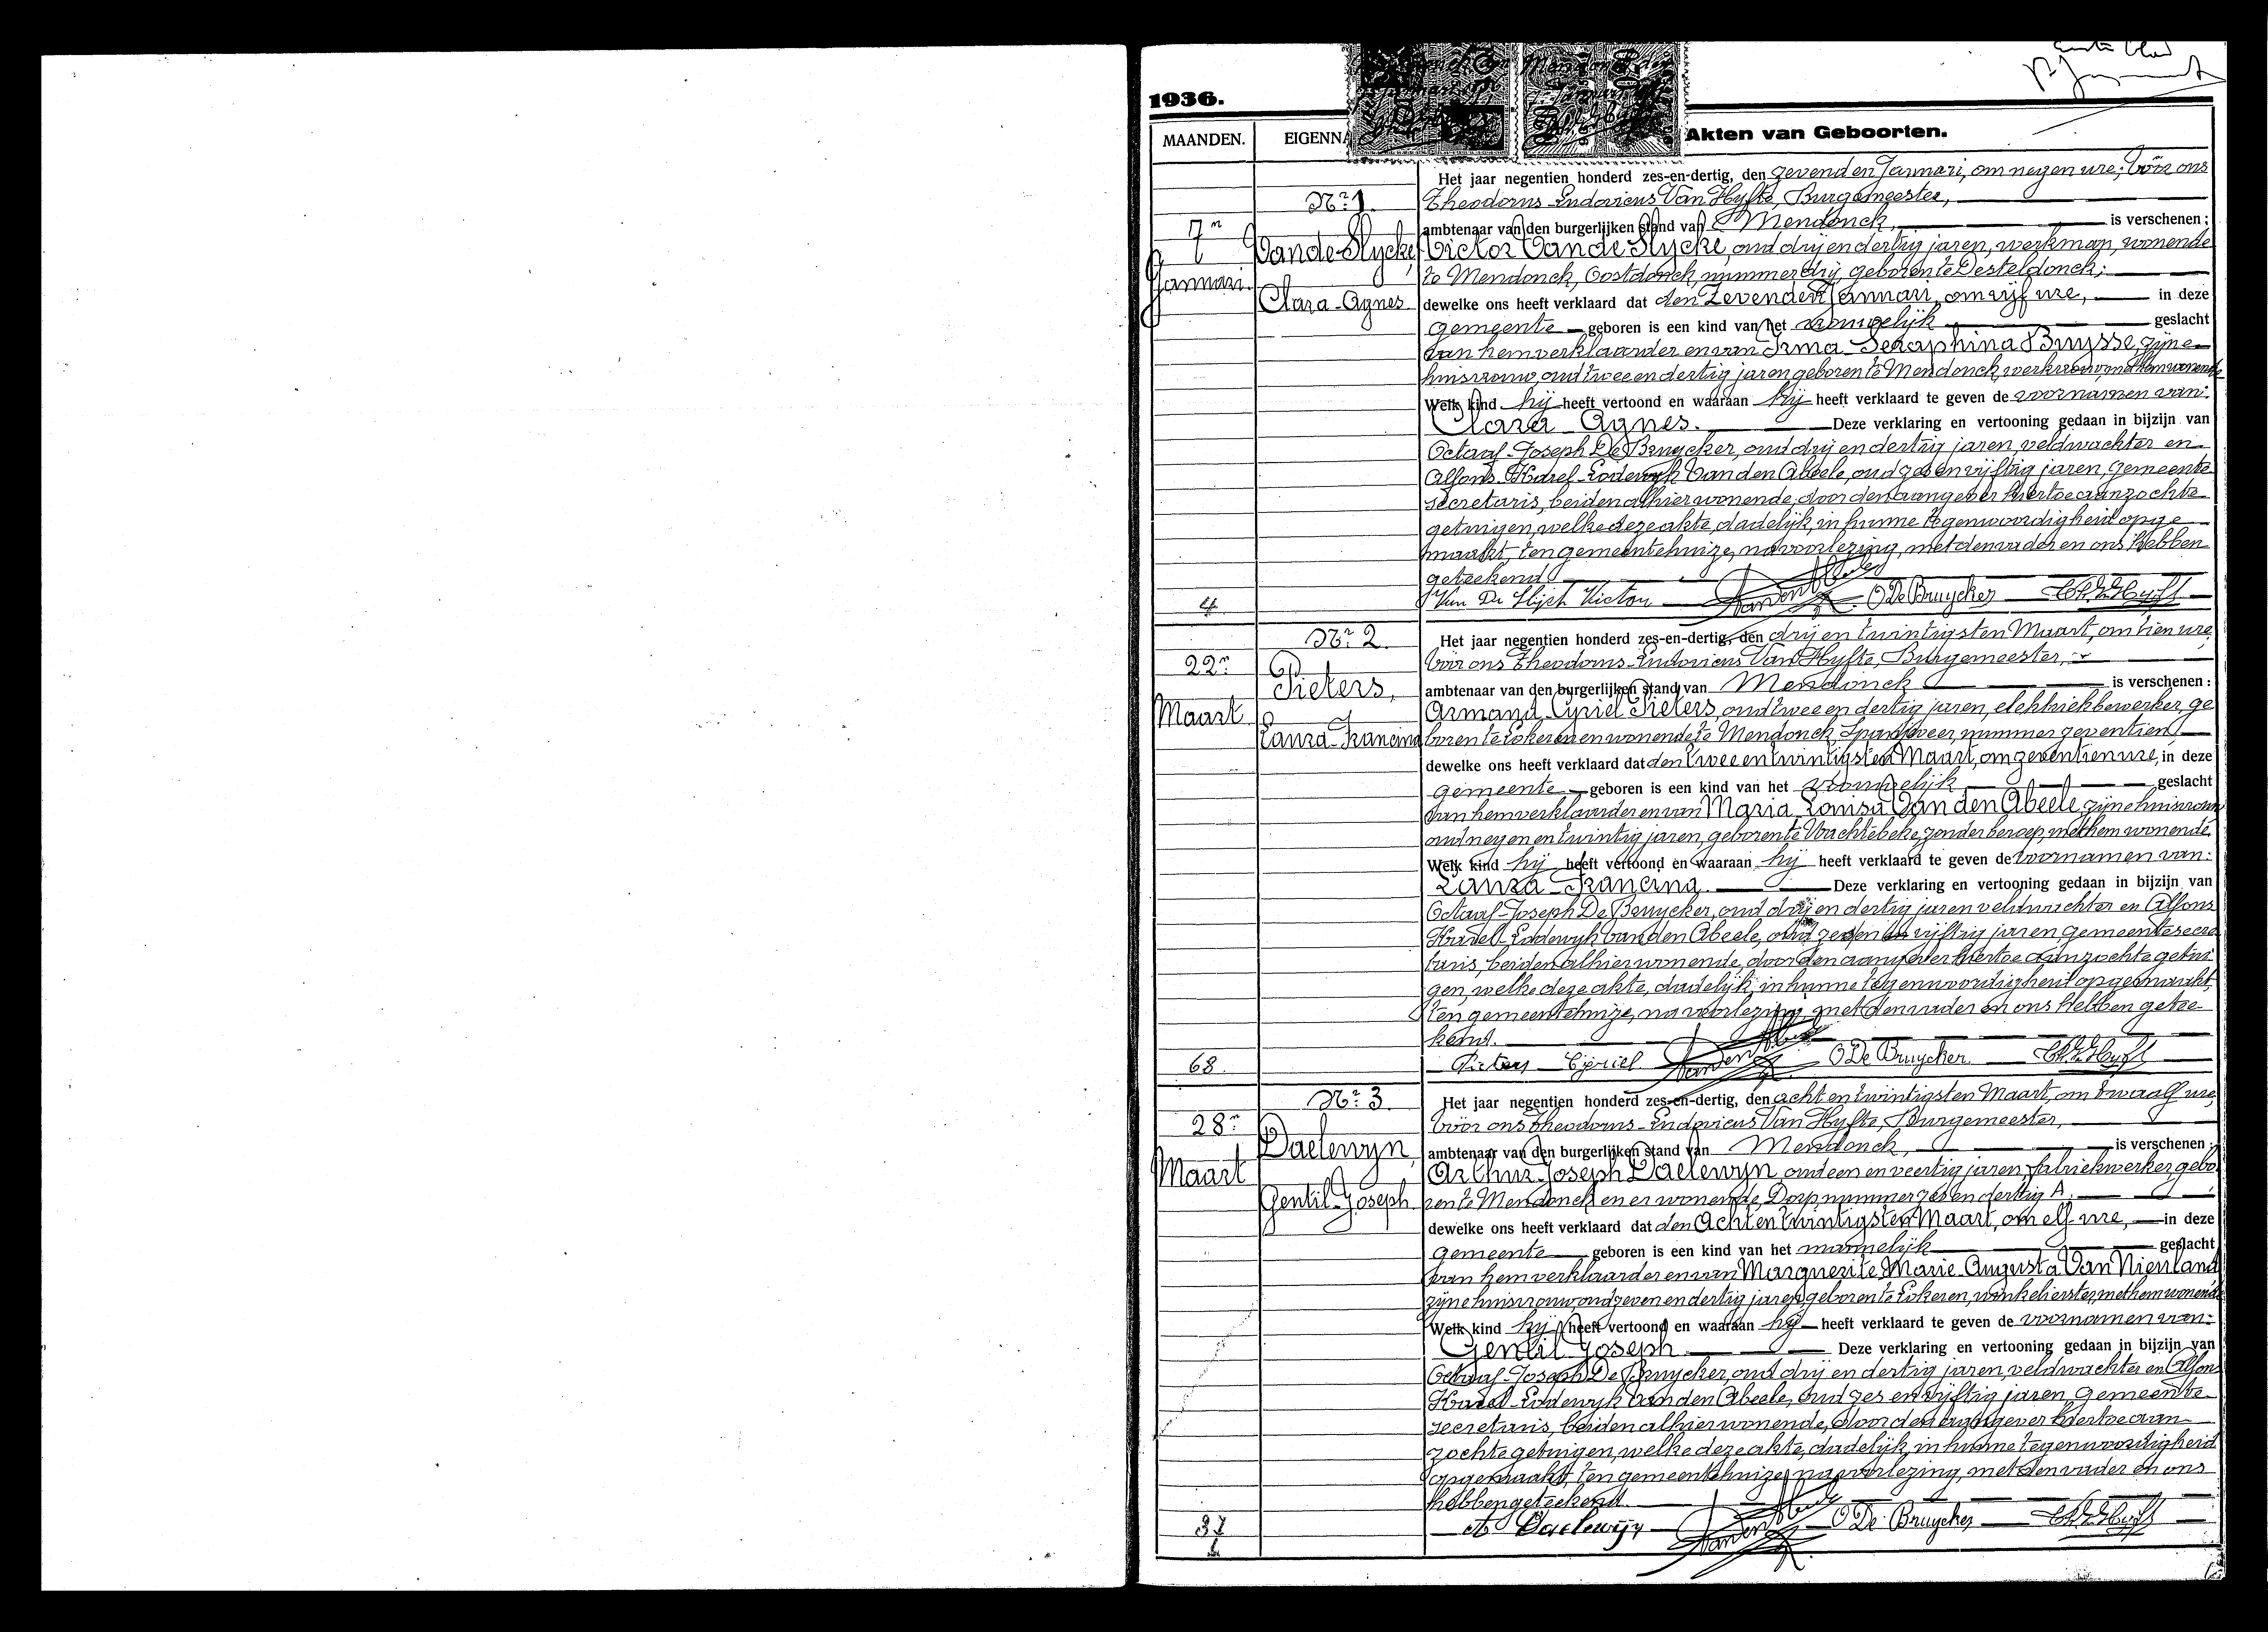 1936.
MAANDEN.
EIGENNA
Akten van Geboorten.
Het jaar negentien honderd zes-en-dertig, den zevenden Januari, om negen ure, vóór ons
Nr. 1.
Theodorus-Ludovicus Van Hyfte, Burgemeester,
7n
ambtenaar van den burgerlijken stand van Mendonck, is verschenen:
Van de Slycke, Victor Van de Slycke, oud drij en dertig jaren, werkman, wonende
Januari.
te Mendonck, Oostdonck, nummer drij, geboren te Desteldonck;
Clara-Agnes
dewelke ons heeft verklaard dat den Zevenden Januari, om vijf ure, in deze
gemeente geboren is een kind van het vrouwelijk geslacht
van hem verklaarder en van Irma-Seraphina Buysse, zijne
huisvrouw, oud twee en dertig jaren geboren te Mendonck, werkvrouw, met hem wonende
Welk kind hij heeft vertoond en waaraan hij heeft verklaard te geven de voornamen van:
Clara Agnes. Deze verklaring en vertooning gedaan in bijzijn van
Octaaf-Joseph De Bruycker, oud drij en dertig jaren, veldwachter en
Alfons-Karel-Lodewyk Van den Abeele, oud zes en vijftig jaren, gemeente
secretaris, beiden alhier wonende, door den aangever hiertoe aanzochte
getuigen, welke deze akte, dadelijk, in hunne tegenwoordigheid opge
maakt, ten gemeentehuize, na voorlezing, met den vader en ons hebben
geteekend
4
Van De Slijck Victor O De Bruycker
Nr. 2.
Het jaar negentien honderd zes-en-dertig, den drij en twintigsten Maart, om tien ure,
22n
vóór ons Theodorus-Ludovicus Van Hyfte, Burgemeester,
Pieters,
ambtenaar van den burgerlijken stand van Mendonck is verschenen:
Maart
Armand-Cyriel Pieters, oud twee en dertig jaren, elektriekbewerker, ge
Laura-Francina
boren te Lokeren en wonende te Mendonck, Spanjeveer, nummer zeventien
dewelke ons heeft verklaard dat den Twee en twintigsten Maart, om zeventien ure, in deze
gemeente geboren is een kind van het vrouwelijk geslacht
van hem verklaarder en van Maria Louisa Van den Abeele, zijne huisvrouw
oud negen en twintig jaren, geboren te Wachtebeke, zonder beroep, met hem wonende.
Welk kind hij heeft vertoond en waaraan hij heeft verklaard te geven de voornamen van:
Laura-Francina. Deze verklaring en vertooning gedaan in bijzijn van
Octaaf-Joseph De Bruycker, oud drij en dertig jaren veldwachter en Alfons
Karel-Lodewyk Van den Abeele, oud zes en vijftig jaren, gemeentesecre
taris, beiden alhier wonende, door den aangever hiertoe aanzochte getui
gen, welke deze akte, dadelijk, in hunne tegenwoordigheid opgemaakt,
ten gemeentehuize, na voorlezing, met den vader en ons hebben getee-
kend.
68.
Pieters Cyriel O De Bruycker
Nr. 3.
Het jaar negentien honderd zes-en-dertig, den acht en twintigsten Maart, om twaalf ure,
28n
vóór ons Theodorus-Ludovicus Van Hyfte, Burgemeester,
Daelewyn,
ambtenaar van den burgerlijken stand van Mendonck, is verschenen:
Maart
Arthur Joseph Daelewyn, oud een en veertig jaren, fabriekwerker, gebo
Gentil-Joseph
ren te Mendonck en er wonende, Dorp nummer zes en dertig A.
dewelke ons heeft verklaard dat den Acht en twintigsten Maart, om elf ure, in deze
gemeente geboren is een kind van het mannelijk geslacht
van hem verklaarder en van Marguerite Marie Augusta Van Nieuland
zijne huisvrouw, oud zeven en dertig jaren, geboren te Lokeren, winkelierster, met hem wonende
Welk kind hij heeft vertoond en waaraan hij heeft verklaard te geven de voornamen van:
Gentil Joseph Deze verklaring en vertooning gedaan in bijzijn van
Octaaf-Joseph De Bruycker, oud drij en dertig jaren, veldwachter en Alfons
Karel-Lodewyk Van den Abeele, oud zes en vijftig jaren, gemeente
secretaris, beiden alhier wonende, door den aangever hiertoe aan
zochte getuigen, welke deze akte, dadelijk, in hunne tegenwoordigheid
opgemaakt, ten gemeentehuize, na voorlezing, met den vader en ons
hebben geteekend.
37
A Daelewijn O De Bruycker